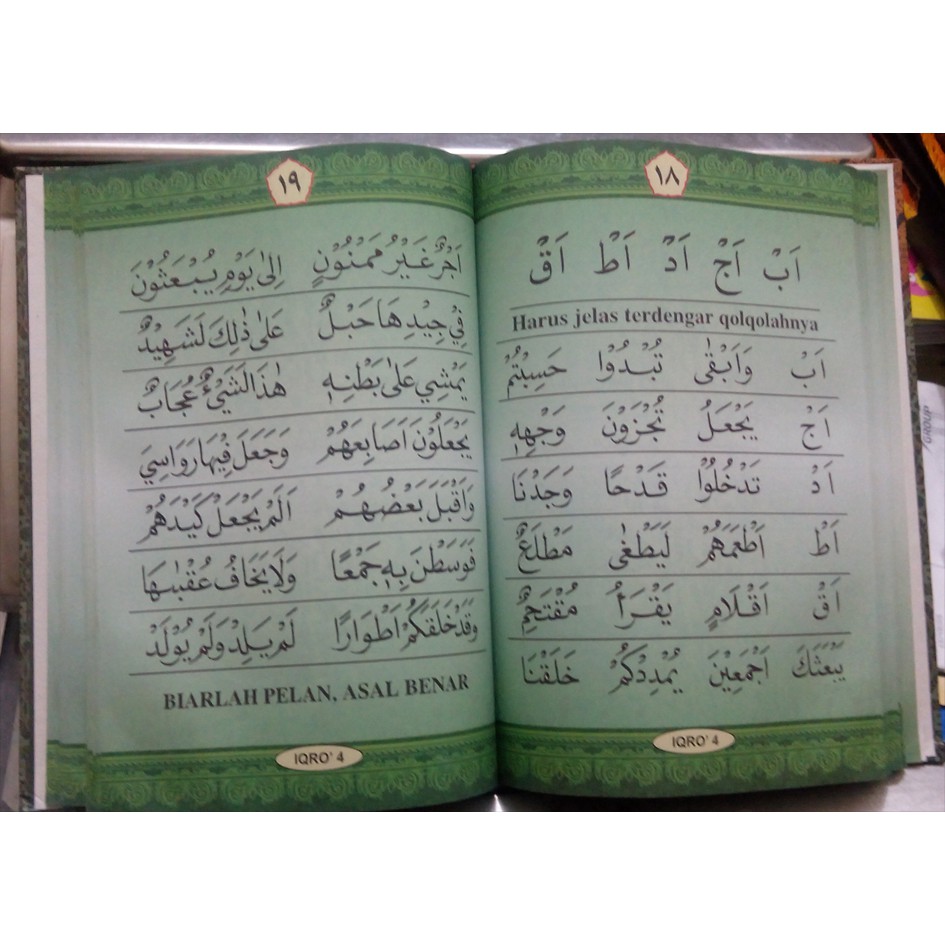 ١٨
اَبْ اَجْ اَدْ اَطْ اَقْ
Harus jelas terdengar qolqolahnya
اَبْ وَاَبْقٰى تُبْدُوْا حَسِبْتُمْ
اَجْ يَجْعَلُ تُجْزَوْنَ وَجْهِهٖ
اَدْ تَدْخُلُوْا قَدْحًا وَجَدْنَا
اَطْ اَطْعَمَهُمْ لَيَطْغٰى مَطْلَعٌ
اَقْ اَقْلَامٍ يَقْرَأُ مُقْتَحِمٌ
يَبْعَثَكَ اَجْمَعِيْنَ يُمْدِدْكُمْ خَلَقْنَا
IQRO' 4
١٩
اَجْرٌ غَيْرُ مَمْنُوْنٍ اِلٰى يَوْمِ يُبْعَثُوْنَ
فِيْ جِيْدِهَا حَبْلٌ عَلٰى ذٰلِكَ لَشَهِيْدٌ
يَمْشِيْ عَلٰى بَطْنِهٖ هٰذَا لَشَيْءٌ عُجَابٌ
يَجْعَلُوْنَ اَصَابِعَهُمْ وَجَعَلَ فِيْهَا رَوَاسِيَ
وَاَقْبَلَ بَعْضُهُمْ اَلَمْ يَجْعَلْ كَيْدَهُمْ
فَوَسَطْنَ بِهٖ جَمْعًا وَلَا يَخَافُ عُقْبٰهَا
وَقَدْ خَلَقَكُمْ اَطْوَارًا لَمْ يَلِدْ وَلَمْ يُوْلَدْ
BIARLAH PELAN, ASAL BENAR
IQRO' 4
GROUP